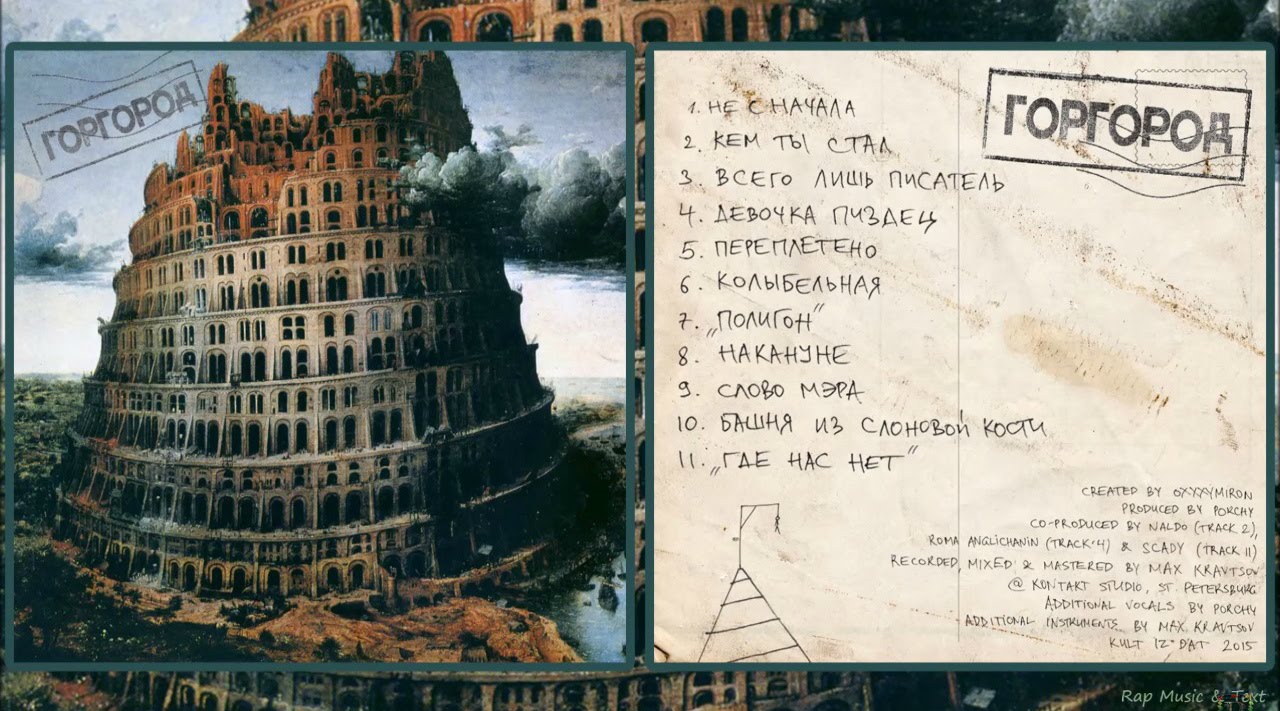 ГОРГОРОД
1. НЕ С НАЧАЛА
2. КЕМ ТЫ СТАЛ
3. ВСЕГО ЛИШЬ ПИСАТЕЛЬ
4. ДЕВОЧКА ПИЗДЕЦ
5. ПЕРЕПЛЕТЕНО
6. КОЛЫБЕЛЬНАЯ
7. „ПОЛИГОН"
8. НАКАНУНЕ
9. СЛОВО МЭРА
10. БАШНЯ ИЗ СЛОНОВОЙ КОСТИ
11. „ГДЕ НАС НЕТ"
ГОРГОРОД
CREATED BY OXXXYMIRON
PRODUCED BY PORCHY
CO-PRODUCED BY NALDO (TRACK 2),
ROMA ANGLICHANIN (TRACK 4) & SCADY (TRACK 11)
RECORDED, MIXED & MASTERED BY MAX KRAVTSOV
@ KONTAKT STUDIO, ST. PETERSBURG
ADDITIONAL VOCALS BY PORCHY
ADDITIONAL INSTRUMENTS BY MAX KRAVTSOV
KULT IZ DAT 2015
Rap Music & Text